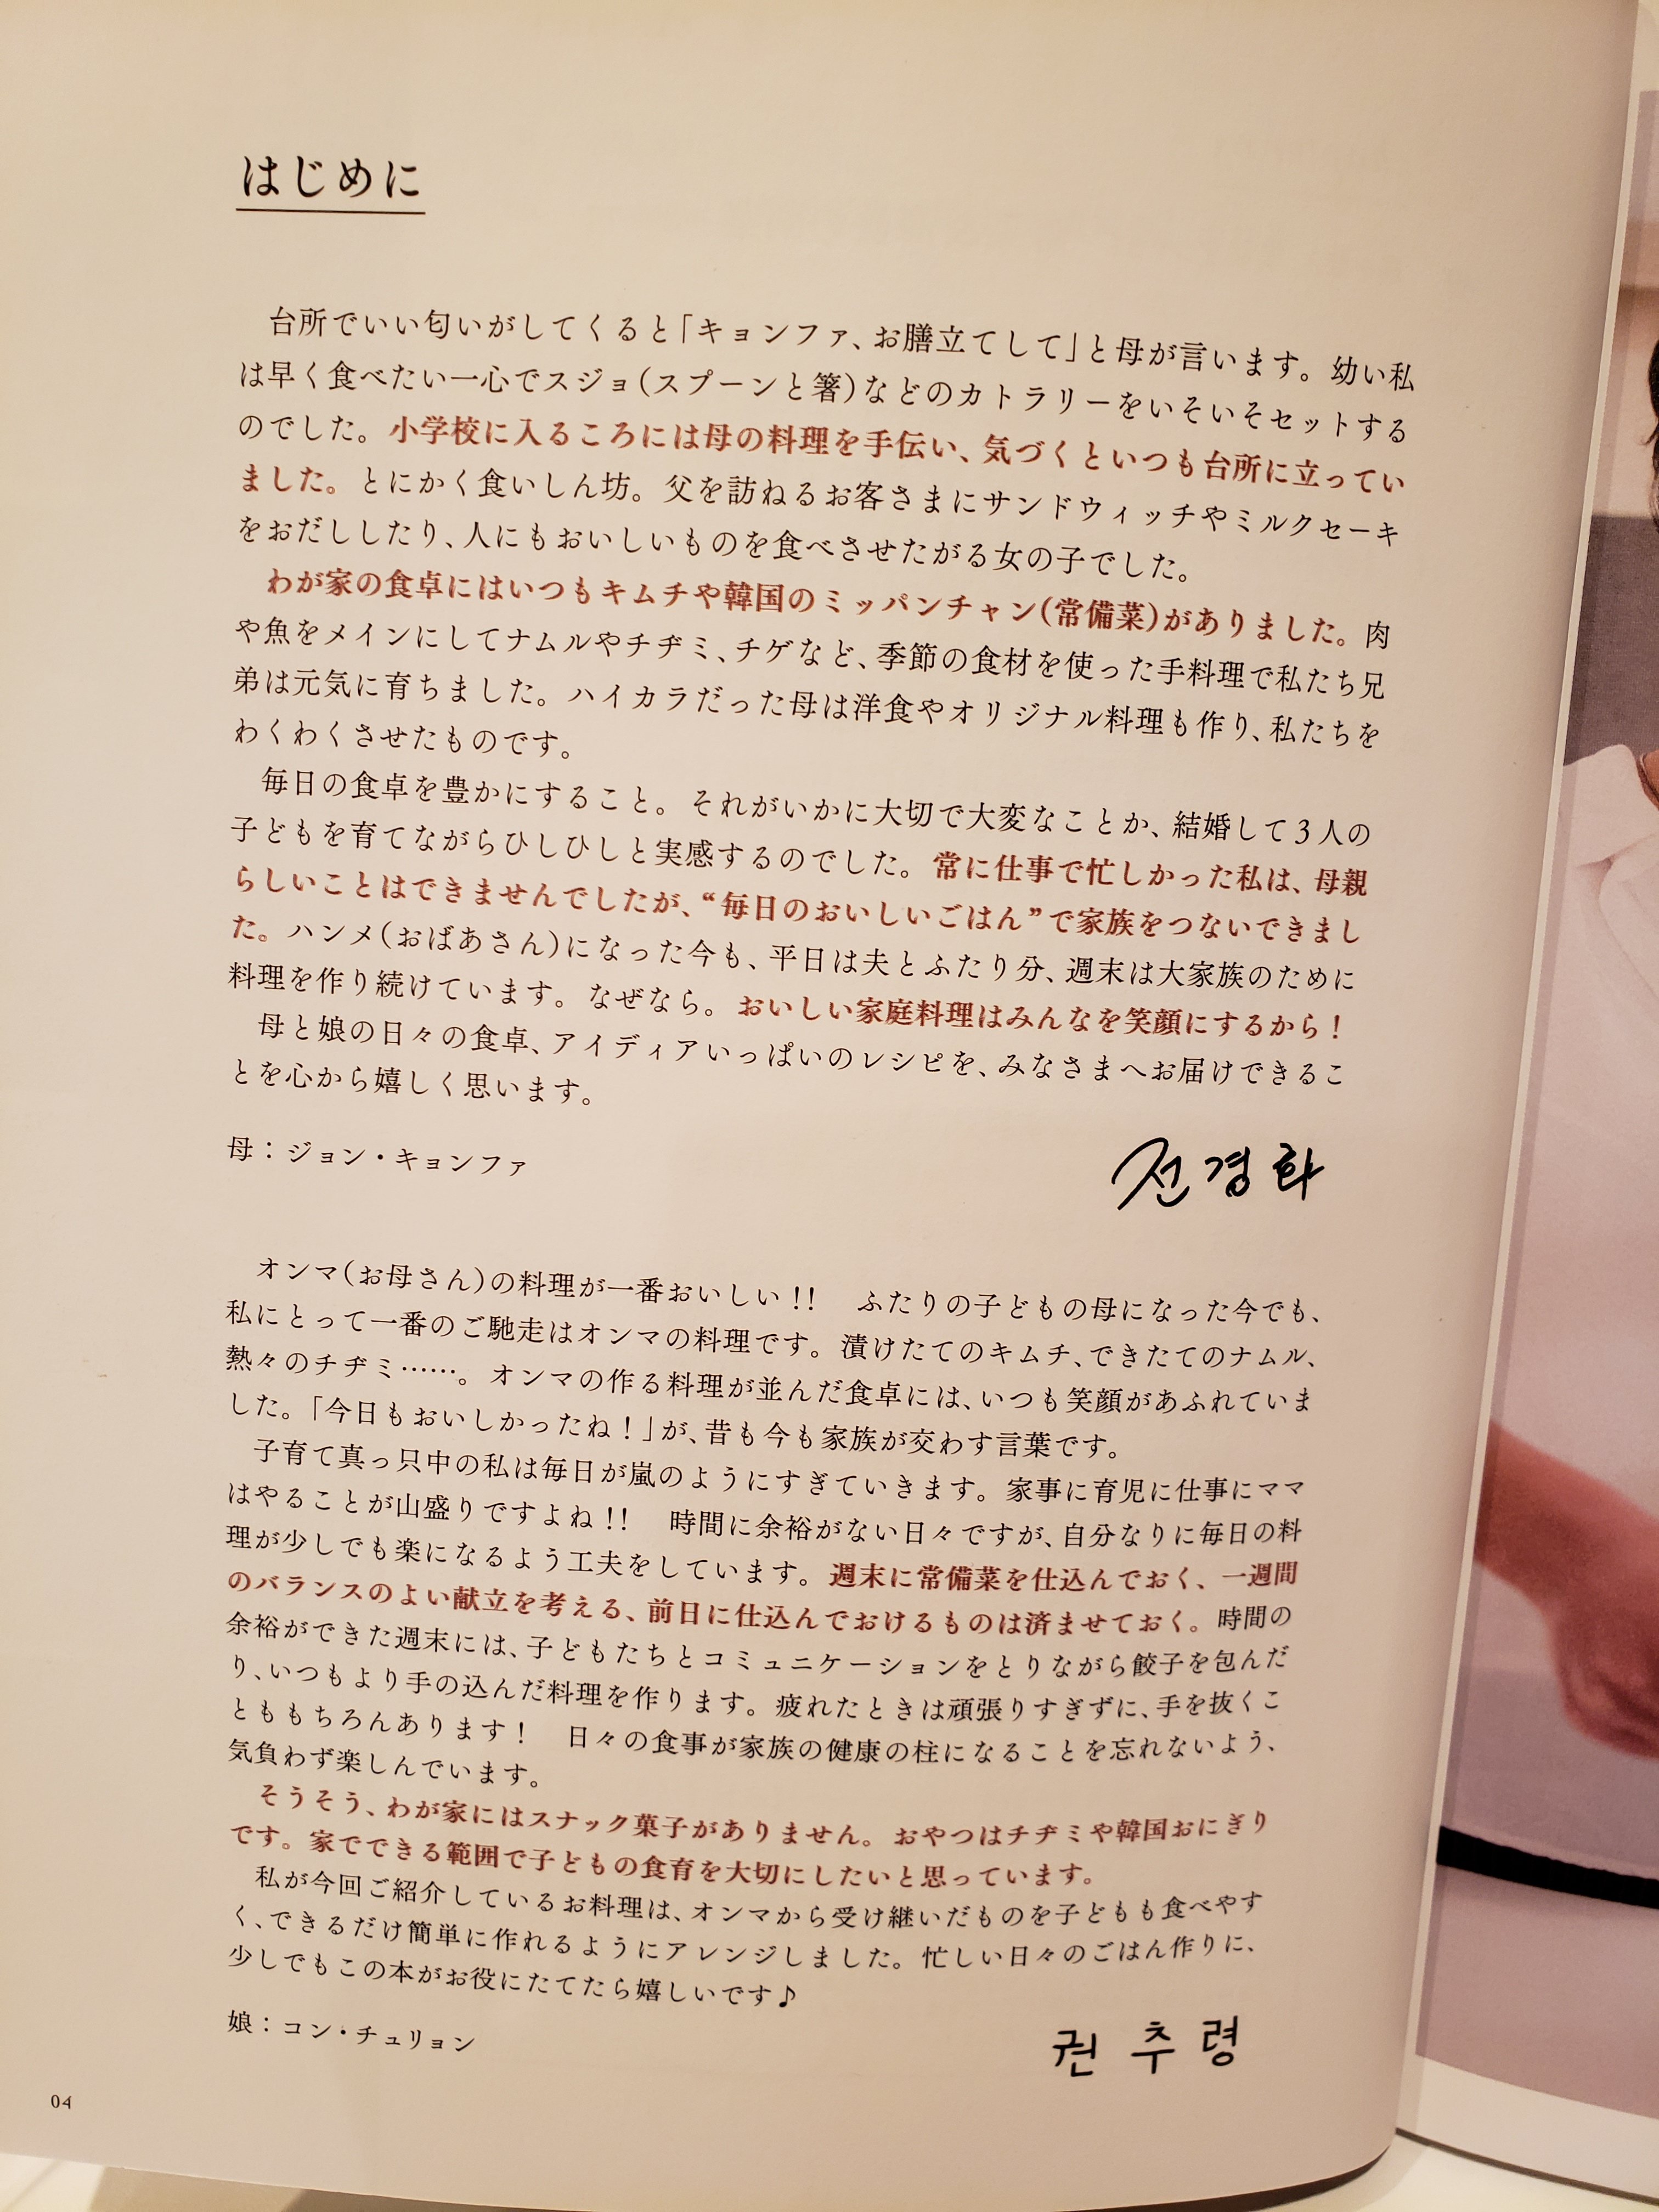 はじめに
台所でいい匂いがしてくると「キョンファ、お膳立てして」と母が言います。幼い私
は早く食べたい一心でスジョ(スプーンと箸)などのカトラリーをいそいそセットする
のでした。小学校に入るころには母の料理を手伝い、気づくといつも台所に立ってい
ました。とにかく食いしん坊。父を訪ねるお客さまにサンドウィッチやミルクセーキ
をおだししたり、人にもおいしいものを食べさせたがる女の子でした。
わが家の食卓にはいつもキムチや韓国のミッパンチャン(常備菜)がありました。肉
や魚をメインにしてナムルやチヂミ、チゲなど、季節の食材を使った手料理で私たち兄
弟は元気に育ちました。ハイカラだった母は洋食やオリジナル料理も作り、私たちを
わくわくさせたものです。
毎日の食卓を豊かにすること。それがいかに大切で大変なことか、結婚して3人の
子どもを育てながらひしひしと実感するのでした。常に仕事で忙しかった私は、母親
らしいことはできませんでしたが、“毎日のおいしいごはん”で家族をつないできまし
た。ハンメ(おばあさん)になった今も、平日は夫とふたり分、週末は大家族のために
料理を作り続けています。なぜなら。おいしい家庭料理はみんなを笑顔にするから！
母と娘の日々の食卓、アイディアいっぱいのレシピを、みなさまへお届けできるこ
とを心から嬉しく思います。
母：ジョン・キョンファ
전경화
オンマ(お母さん)の料理が一番おいしい!!　ふたりの子どもの母になった今でも、
私にとって一番のご馳走はオンマの料理です。漬けたてのキムチ、できたてのナムル、
熱々のチヂミ……。オンマの作る料理が並んだ食卓には、いつも笑顔があふれていま
した。「今日もおいしかったね！」が、昔も今も家族が交わす言葉です。
子育て真っ只中の私は毎日が嵐のようにすぎていきます。家事に育児に仕事にママ
はやることが山盛りですよね!!　時間に余裕がない日々ですが、自分なりに毎日の料
理が少しでも楽になるよう工夫をしています。週末に常備菜を仕込んでおく、一週間
のバランスのよい献立を考える、前日に仕込んでおけるものは済ませておく。時間の
余裕ができた週末には、子どもたちとコミュニケーションをとりながら餃子を包んだ
り、いつもより手の込んだ料理を作ります。疲れたときは頑張りすぎずに、手を抜くこ
とももちろんあります！　日々の食事が家族の健康の柱になることを忘れないよう、
気負わず楽しんでいます。
そうそう、わが家にはスナック菓子がありません。おやつはチヂミや韓国おにぎり
です。家でできる範囲で子どもの食育を大切にしたいと思っています。
私が今回ご紹介しているお料理は、オンマから受け継いだものを子どもも食べやす
く、できるだけ簡単に作れるようにアレンジしました。忙しい日々のごはん作りに、
少しでもこの本がお役にたてたら嬉しいです♪
娘：コン・チュリョン
권 추 령
04